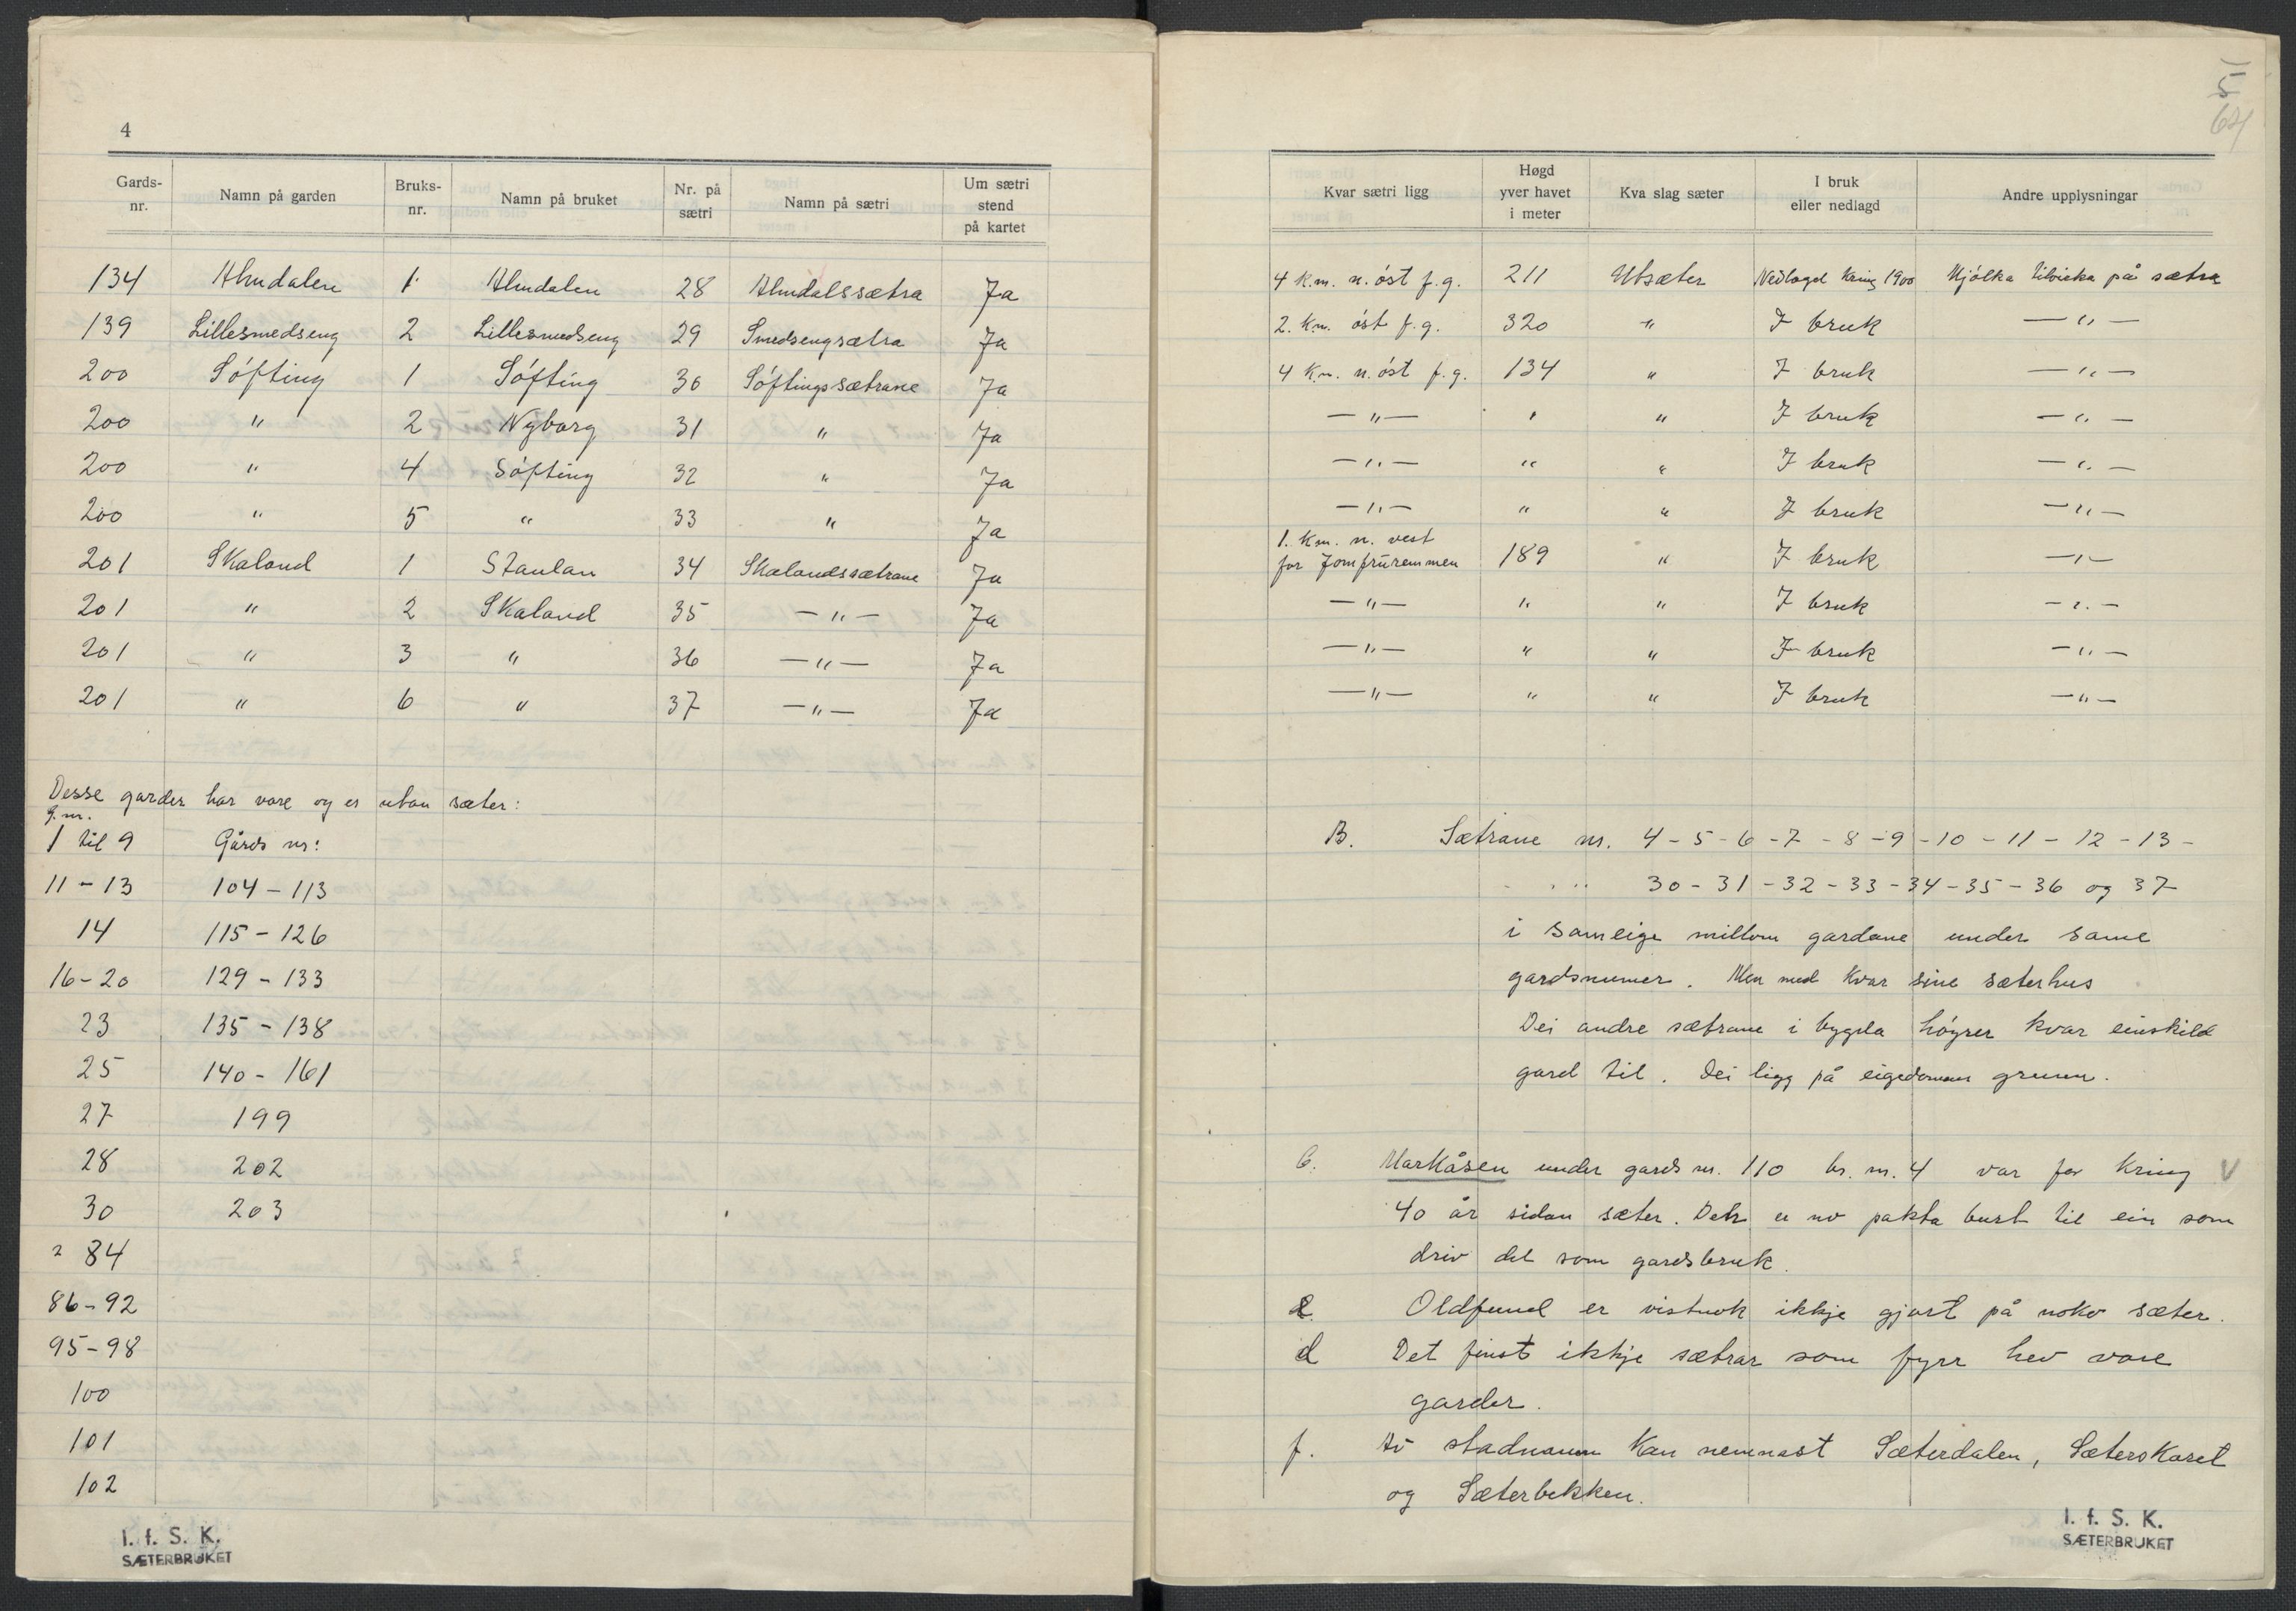 4
Gards-nr. Namn på garden Bruks-nr. Namn på bruket Nr. på sætri Namn på sætri Um sætri stend på kartet
134 Almdalen 1 Almdalen 28 Almdalssætra Ja
139 Lillesmedseng 2 Lillesmedseng 29 Smedsengsætra Ja
200 Søfting 1 Søfting 30 Søftingssætrane Ja
200 " 2 Nyborg 31 " Ja
200 " 4 Søfting 32 " Ja
200 " 5 " 33 " Ja
201 Skaland 1 Staulan 34 Skalandssætrane Ja
201 " 2 Skaland 35 — " — Ja
201 " 3 " 36 — " — Ja
201 " 6 " 37 — " — Ja
Desse garder har vore og er utan sæter:
g. nr.
1 til 9 Gårds nr:
11 - 13 104 - 113
14 115 - 126
16 - 20 129 - 133
23 135 - 138
25 140 - 161
27 199
28 202
30 203
84
86 - 92
95 - 98
100
101
102
I. f. S. K.
SÆTERBRUKET
5
64
Kvar sætri ligg Høgd yver havet i meter Kva slag sæter I bruk eller nedlagd Andre upplysningar
4 km. n. øst f. g. 211 Utsæter Nedlagd kring 1900 Mjølka tilvirka på sætra
2. km. øst f. g. 320 " I bruk — " —
4 km. n. øst f. g. 134 " I bruk — " —
— " — " " I bruk — " —
— " — " " I bruk — " —
— " — " " I bruk — " —
1. km. n. vest
for Jomfruremmen 189 " I bruk — " —
— " — " " I bruk — " —
— " — " " I bruk — " —
— " — " " I bruk — " —
B. Sætrane nr. 4 - 5 - 6 - 7 - 8 - 9 - 10 - 11 - 12 - 13 -
30 - 31 - 32 - 33 - 34 - 35 - 36 og 37
i sameige millom gardane under same
gardsnumer. Men med kvar sine sæterhus
Dei andre sætrane i bygda høyrer kvar einskild
gard til. Dei ligg på eigedomens grunn.
C. Markåsen under gards nr. 110 br. nr. 4 var for kring V
40 år sidan sæter. Det er no pakta burt til ein som
driv det som gardsbruk.
Oldfund er vistnok ikkje gjort på noko sæter.
d Det finst ikkje sætrar som fyrr hev vore
garder.
f. Av stadnamn kan nemnast Sæterdalen, Sæterskaret
og Sæterbekken.
I. f. S. K.
SÆTERBRUKET